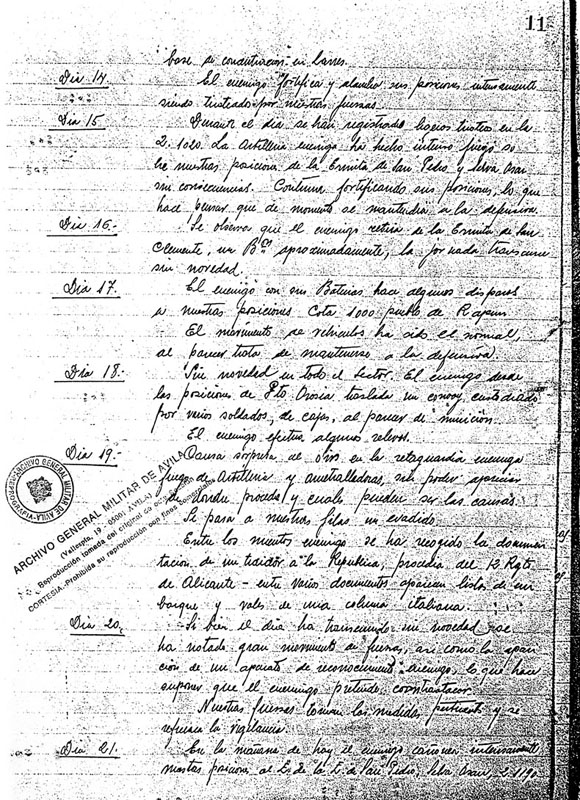 11
base de concentración en Larres.
Dia 14. El enemigo fortifica y alambra sus posiciones intensamente
siendo tiroteados por nuestras fuerzas.
Dia 15. Durante el dia se han registrado ligeros tiroteos en la
2.1020. La Artilleria enemiga ha hecho intenso fuego so
bre nuestras posiciones de la Ermita de San Pedro y Selva Oran
sin consecuencias. Continua fortificando sus posiciones, lo que
hace pensar que de momento se mantendrá a la defensiva.
Dia 16.- Se observa que el enemigo retira de la Ermita de San
Clemente, un Bón aproximadamente, la jornada transcurre
sin novedad.
Dia 17. El enemigo con sus Baterias hace algunos disparos
a nuestras posiciones Cota 1000 pueblo de Rapun
El movimiento de vehiculos ha sido el normal,
al parecer trata de mantenerse a la defensiva
Dia 18.- Sin novedad en todo el sector. El enemigo desde
las posiciones de Pto Orosia traslada un convoy, custodiado
por varios soldados, de cajas, al parecer de munición.
El enemigo efectua algunos relevos.
Dia 19.- Causa sorpresa al oirse en la retaguardia enemiga
fuego de Artilleria y ametralladoras, sin poder apreciar
de donde proceda y cuales pueden ser las causas.
Se pasa a nuestras filas un evadido.
Entre los muertos enemigo se ha recogido la documen
tacion de un traidor a la Republica, procedia del 12 Regto
de Alicante - entre varios documentos aparecian listas de em
barque y vales de una columna italiana.
Dia 20, Si bien el dia ha transcurrido sin novedad se
ha notado gran movimiento de fuerzas, asi como la apari
ción de un aparato de reconocimiento enemigo, lo que hace
suponer que el enemigo pretende contraatacar.
Nuestras fuerzas toman las medidas pertinentes y se
refuerza la vigilancia.
Dia 21.- En la mañana de hoy el enemigo cañonea intensamente
nuestras posiciones al E. de la E. de San Pedro, Selva Oran, 2.1190
ARCHIVO GENERAL MILITAR DE AVILA
(Vallespin, 19 - 05001 AVILA)
Reproducción tomada del Original de
CORTESIA.-Prohibida su reproducción con fines
ARCHIVO GENERAL MILITAR DE AVILA